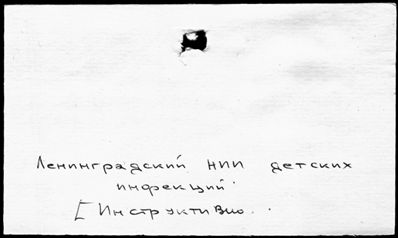 Ленинградский НИИ детских
инфекций.
[Инструктивно..